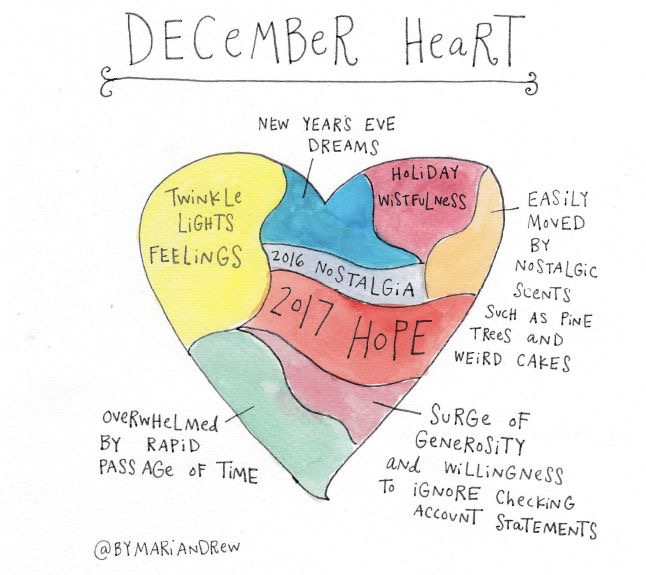 DECeMBeR HeaRT
NEW YEAR'S EVE
DREAMS
HOLiDAY
WiSTFULNeSS
TWiNKLe
LiGHTS
FEELiNGS
EASiLY
MoVED
BY
NoSTALGiC
ScENTS
SUCH AS PiNE
TReeS aND
WEiRD CAKES
2016 NoSTALGiA
2017 HoPE
OVeRWHeLMed
BY RAPiD
PASSAGe oF TiME
SuRGe oF
GeNeRoSiTY
and WiLLiNGNeSS
To iGNoRE CHecKiNG
ACCoUNT STaTEMENTS
@BYMARiANDRew